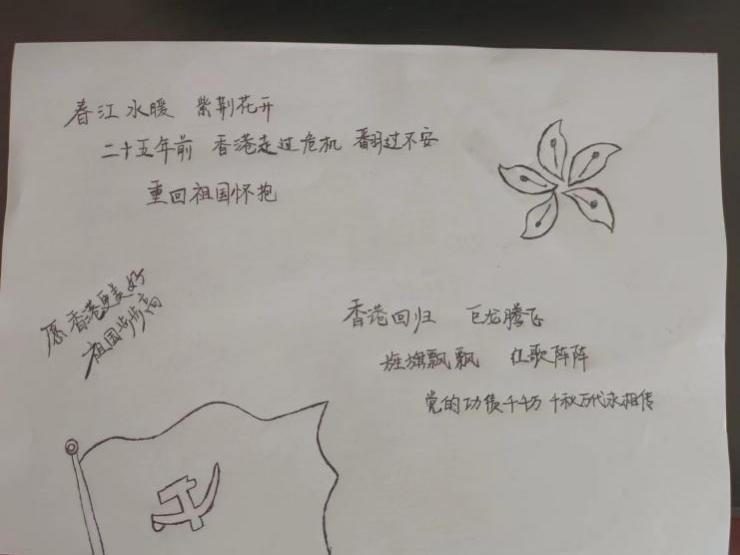 春江水暖 紫荆花开
二十五年前 香港走过危机 翻过不安
重回祖国怀抱
愿香港更美好
祖国步步高
香港回归 巨龙腾飞
旌旗飘飘 红歌阵阵
党的功绩千千万 千秋万代永相传